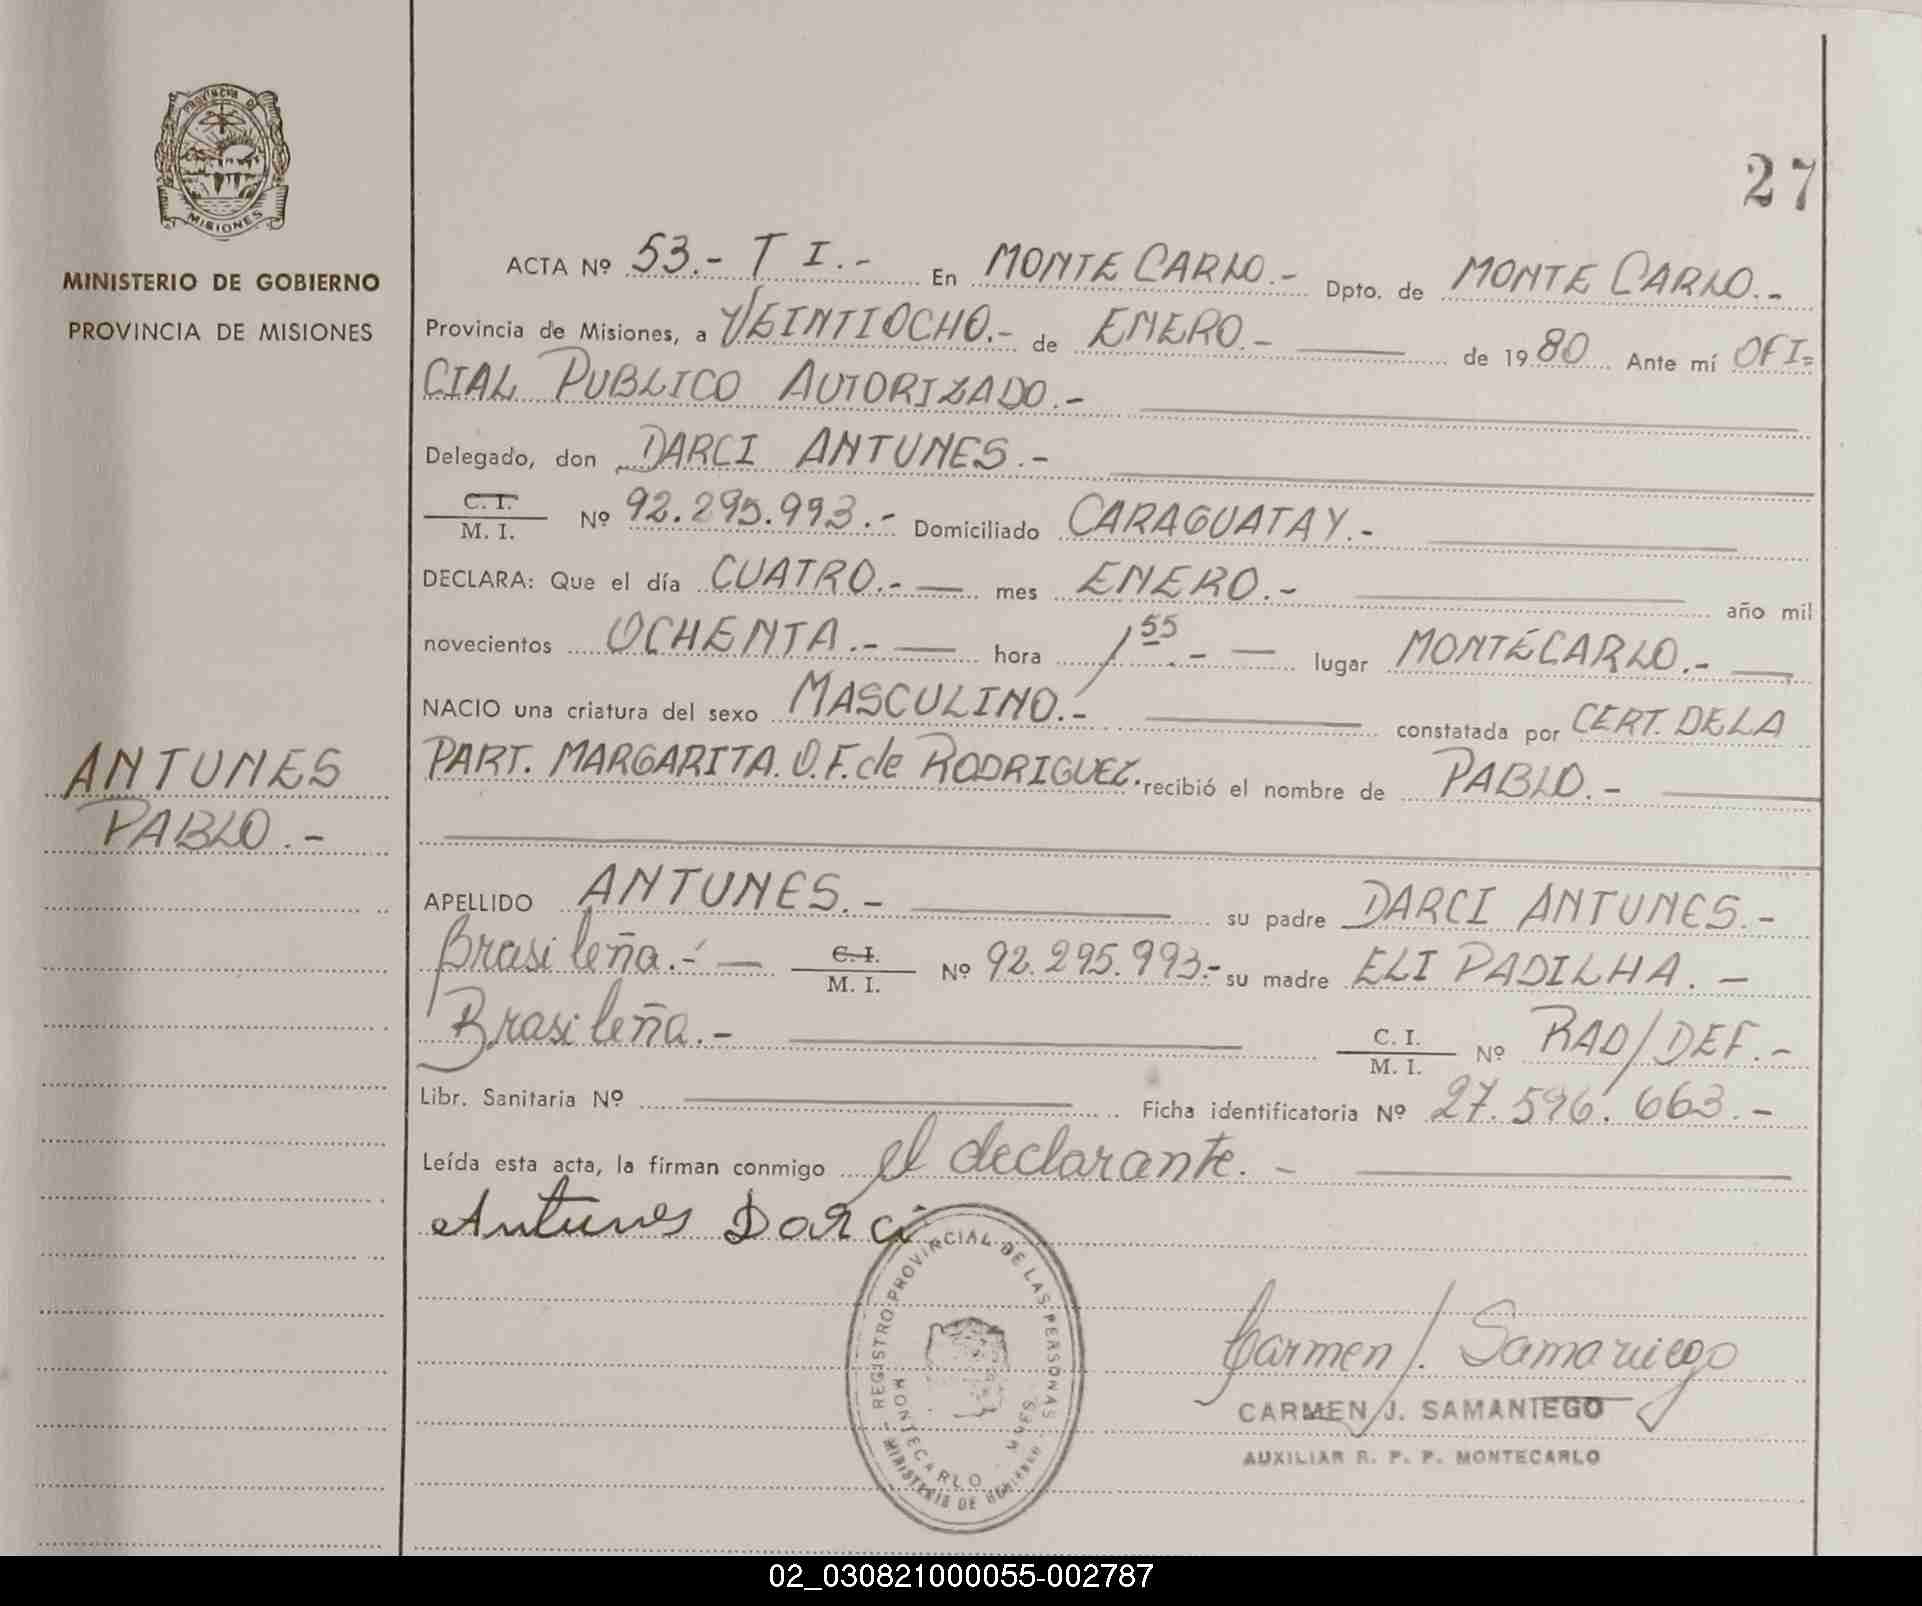 PROVINCIA DE
MISIONES
MINISTERIO DE GOBIERNO
PROVINCIA DE MISIONES
ANTUNES
PABLO.-
27
ACTA Nº 53.- T I.- En MONTE CARLO.- Dpto. de MONTE CARLO.-
Provincia de Misiones, a VEINTIOCHO.- de ENERO.- de 1980 Ante mí OFI=
CIAL PUBLICO AUTORIZADO.-
Delegado, don DARCI ANTUNES.-
C. I.
M. I. Nº 92.295.993.- Domiciliado CARAGUATAY.-
DECLARA: Que el día CUATRO.- mes ENERO.- año mil
novecientos OCHENTA.- hora 1 55.- lugar MONTECARLO.-
NACIO una criatura del sexo MASCULINO.- constatada por CERT. DE LA
PART. MARGARITA. O. F. de RODRIGUEZ. recibió el nombre de PABLO.-
APELLIDO ANTUNES.- su padre DARCI ANTUNES.-
Brasileña.- C. I. M. I. Nº 92.295.993.- su madre ELI PADILHA.-
Brasileña.- C. I. M. I. Nº RAD/DEF.-
Libr. Sanitaria Nº Ficha identificatoria Nº 27.596.663.-
Leída esta acta, la firman conmigo el declarante.-
Antunes Darci
REGISTRO PROVINCIAL DE LAS PERSONAS
MONTECARLO - MNES.
MINISTERIO DE GOBIERNO
Carmen J. Samaniego
CARMEN J. SAMANIEGO
AUXILIAR R. P. P. MONTECARLO
02_030821000055-002787